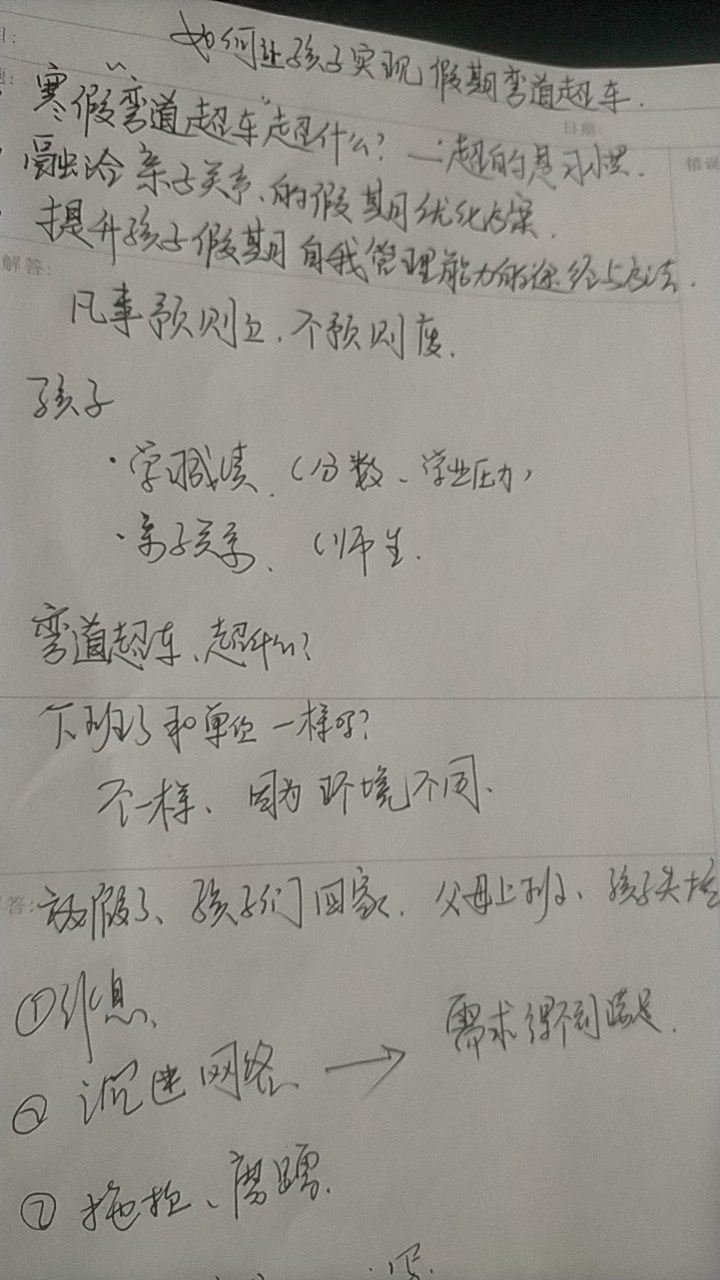 如何让孩子实现假期弯道超车.
寒假"弯道超车"超什么? 一:超的是习惯.
日期
错误
融洽亲子关系、的假期优化方案.
提升孩子假期自我管理能力的途径与方法.
解答:
凡事预则立.不预则废.
孩子
·学职绩.(分数、学业压力)
·亲子关系、(师生.
弯道超车、超什么?
下班了和单位一样吗?
不一样、因为环境不同.
答:
放假了、孩子们回家.父母上班、孩子失控
①作息、
②沉迷网络 → 需求得不到满足.
⑦拖拉、磨蹭.